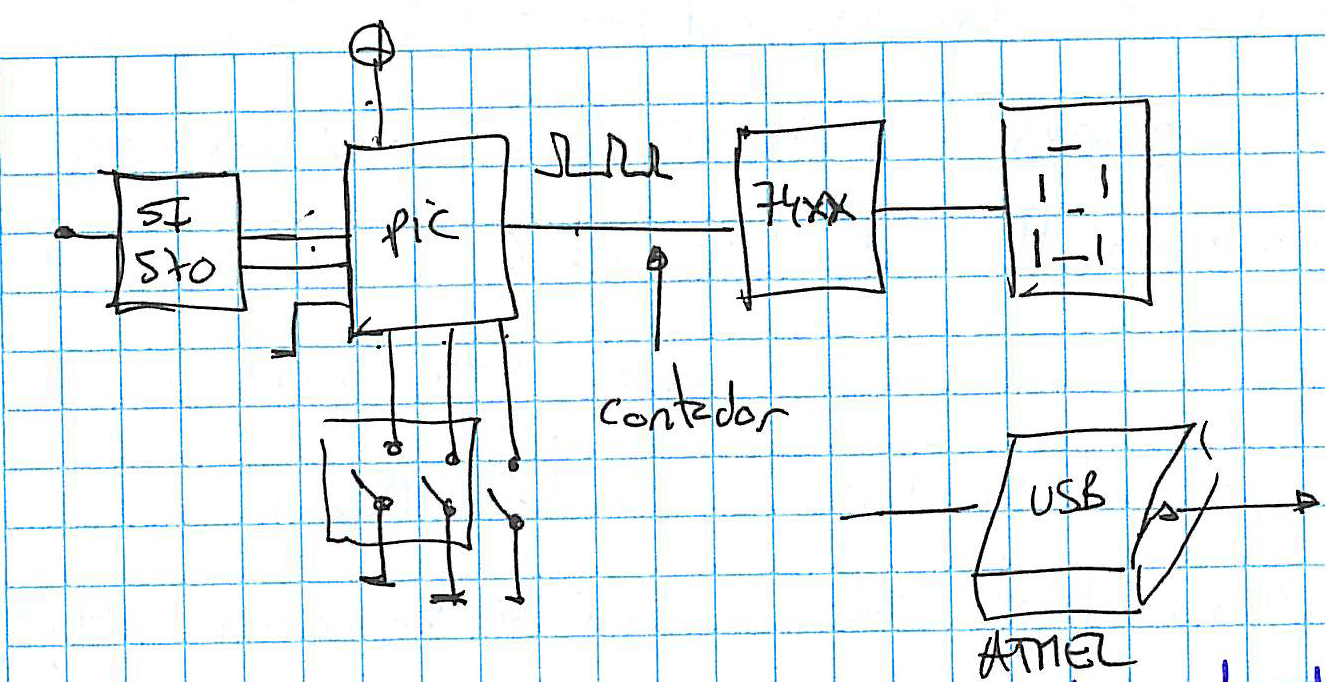 SI
570
PIC
74XX
contador
USB
ATMEL